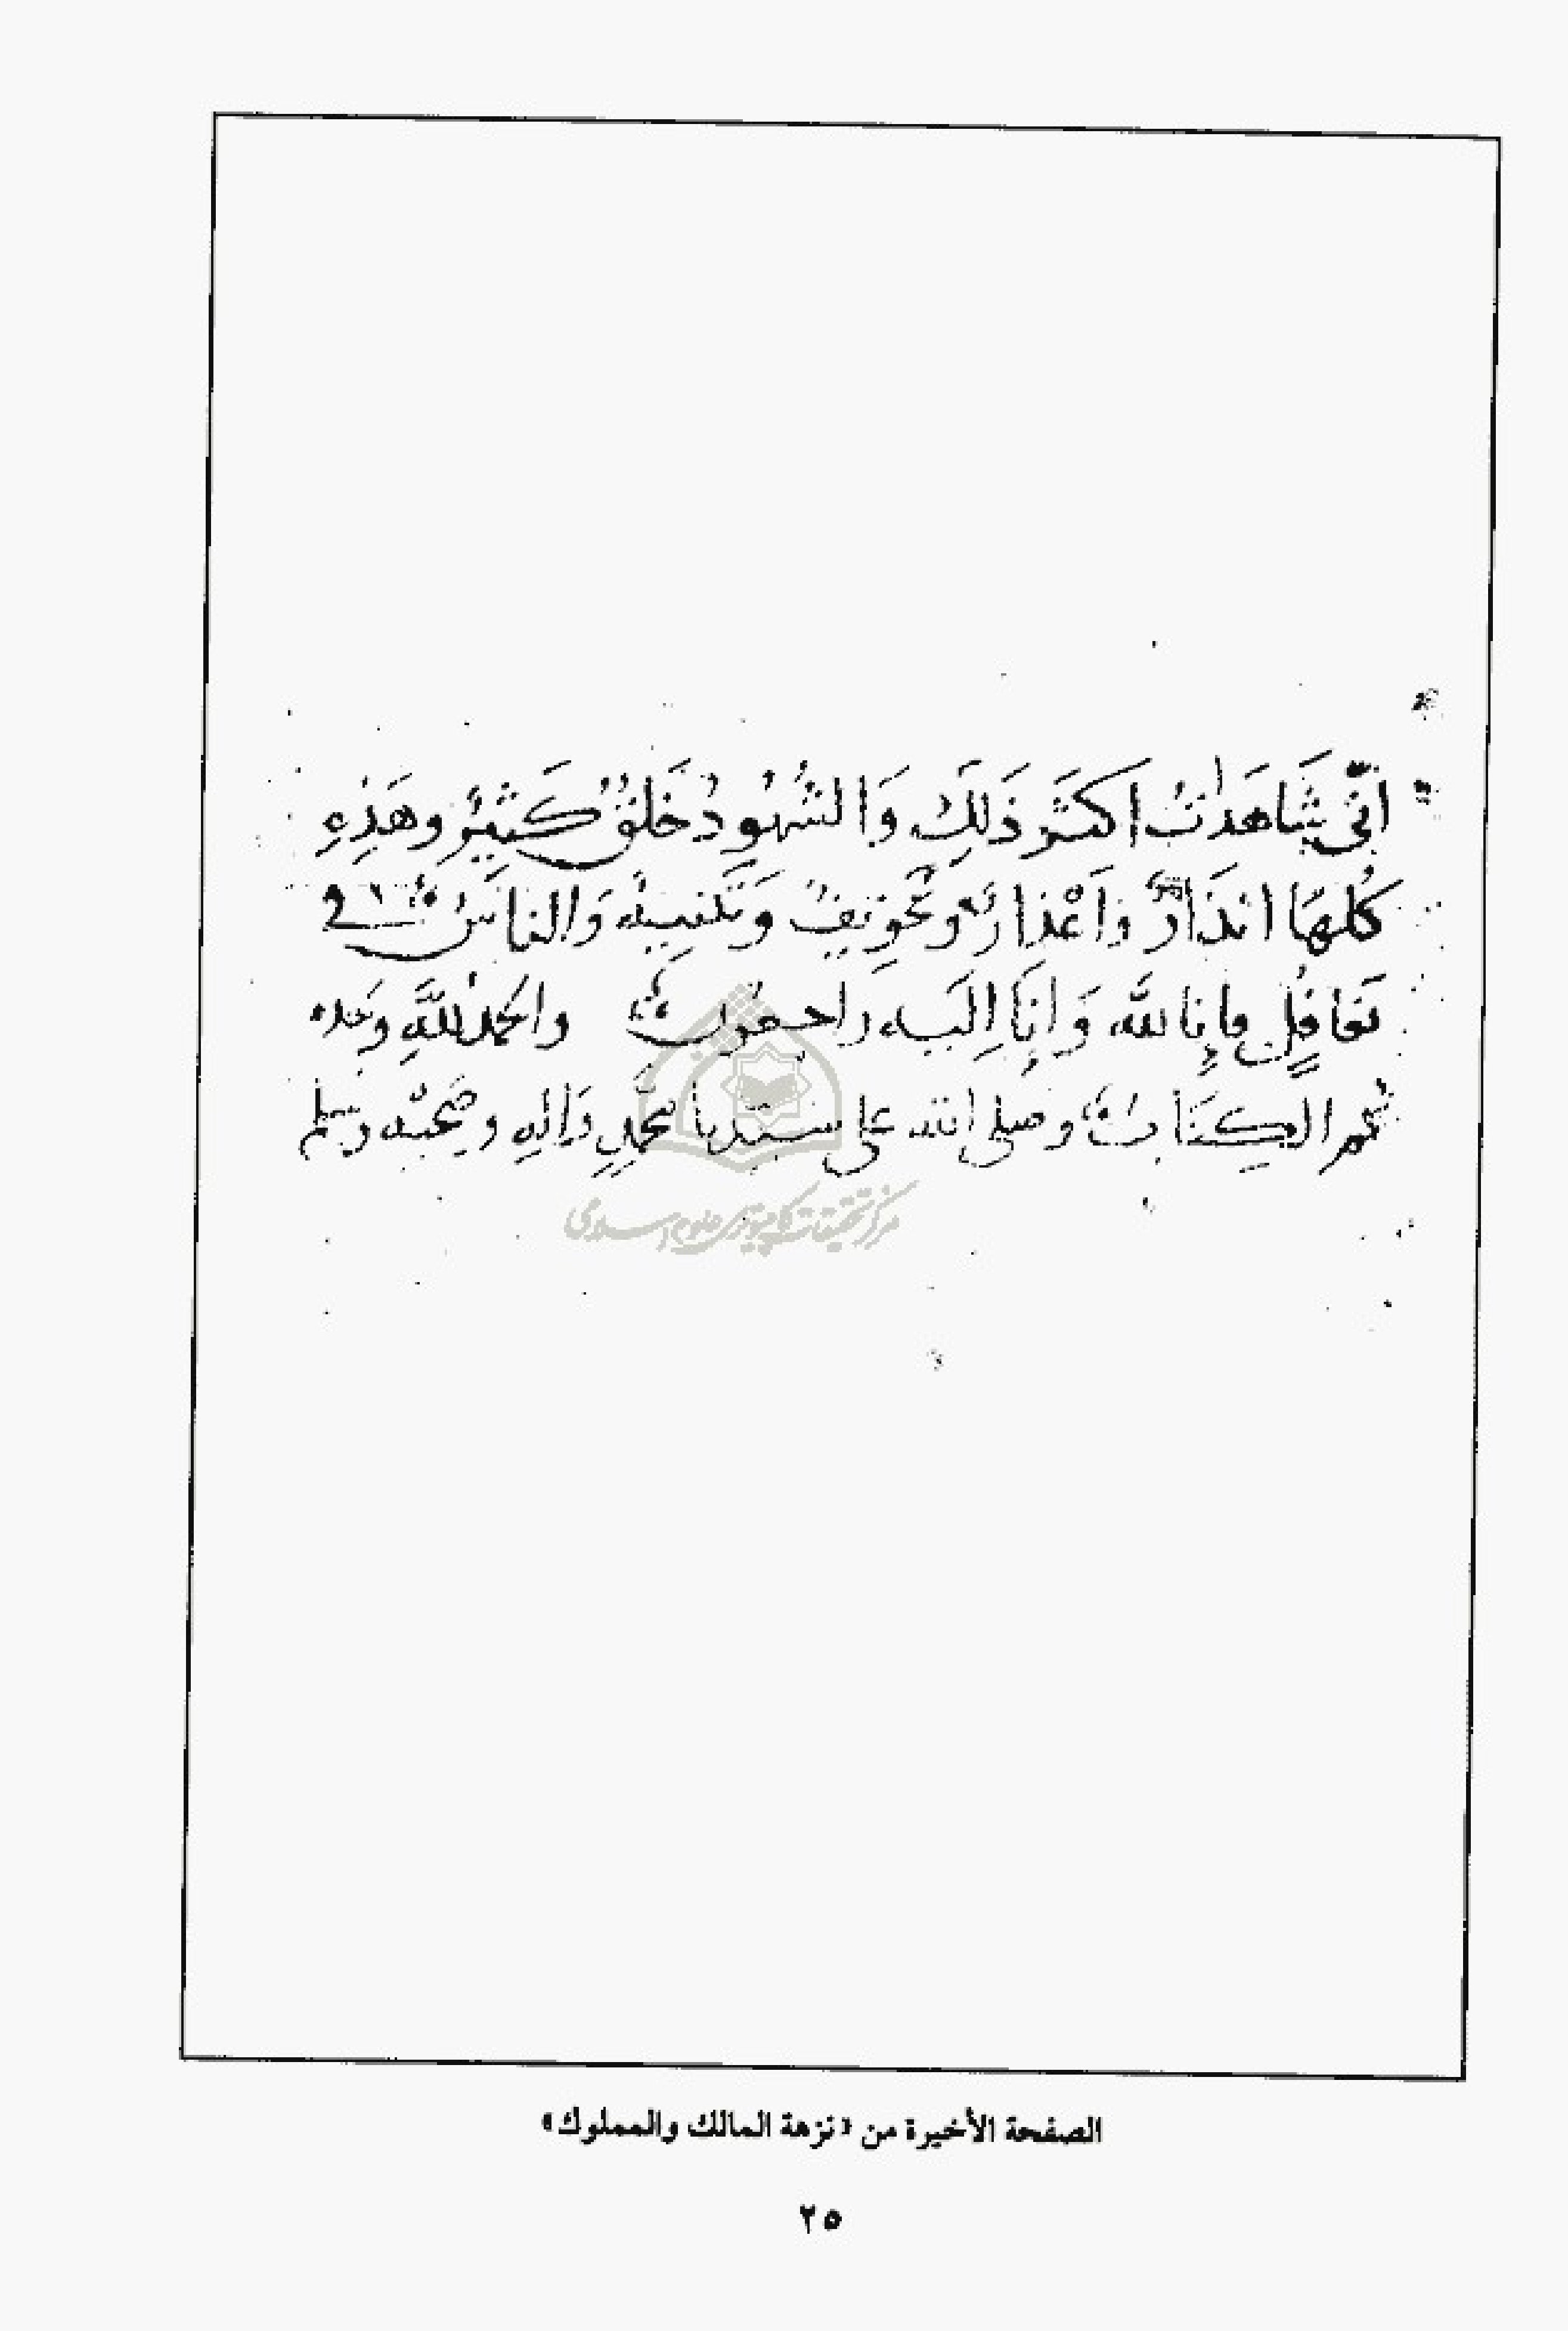 اني شَاهَدتُ اكثَر ذَلِكَ وَالشُهُودُ خَلقٌ كَثيرٌ وهَذِهِ
كُلهَا انذَارٌ وَاَعْذارٌ وتَحوِيفٌ وَتَنبيهٌ وَالناسُ في
تغافُلٍ فإنا لله وَانَا اِلَيه راجعُونَ والحَمدُ للَّهِ وحَده
تم الكِتَابُ وصلى الله على سيدنا محَمدٍ وَالهِ وصَحبه وسلم
مركز تحقيقات كامپيوترى علوم اسلامى
الصفحة الأخيرة من «نزهة المالك والمملوك»
٢٥